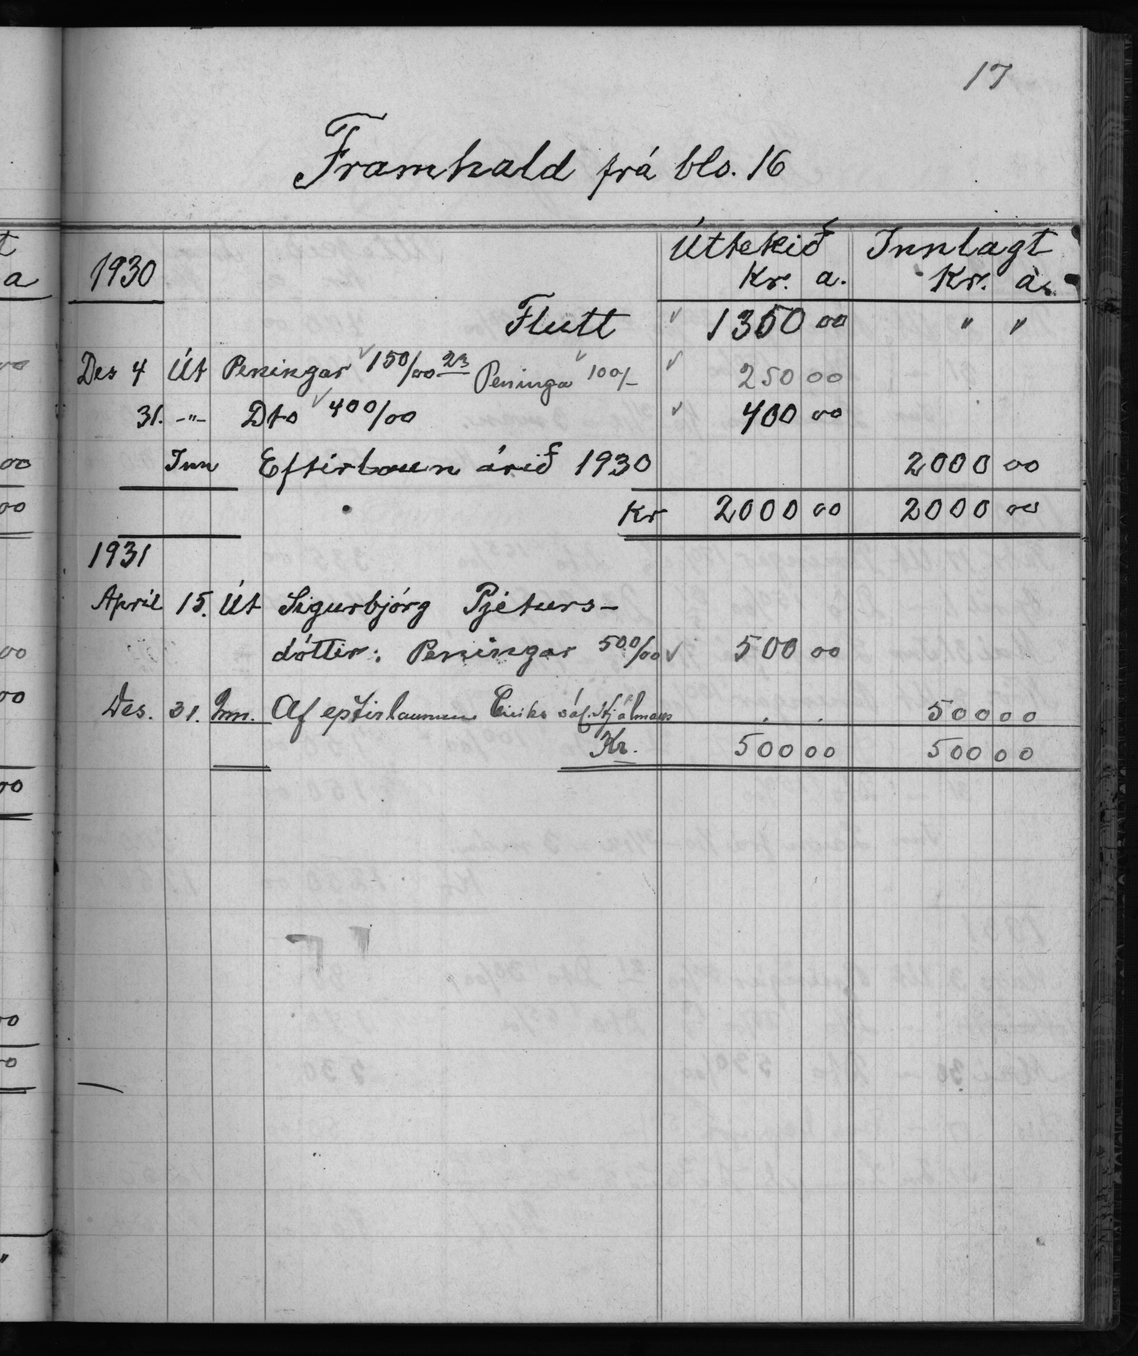 17
Framhald frá bls. 16
1930 Úttekið Innlagt
Kr. a. Kr. a.
Flutt " 1350 00 " "
Des 4 Út Peningar 150/00 23 Peninga 100/- " 250 00
31. -"- Dto 400/00 " 400 00
Inn Eftirlaun árið 1930 2000 00
Kr 2000 00 2000 00
1931
Apríl 15. Út Sigurbjörg Pjeturs-
dóttir: Peningar 500/00 500 00
Des. 31. Inn. Af eptirlaunum Eiríks sál. Hjálmars 500 00
Kr. 500 00 500 00
t
a
00
00
00
00
00
00
00
"